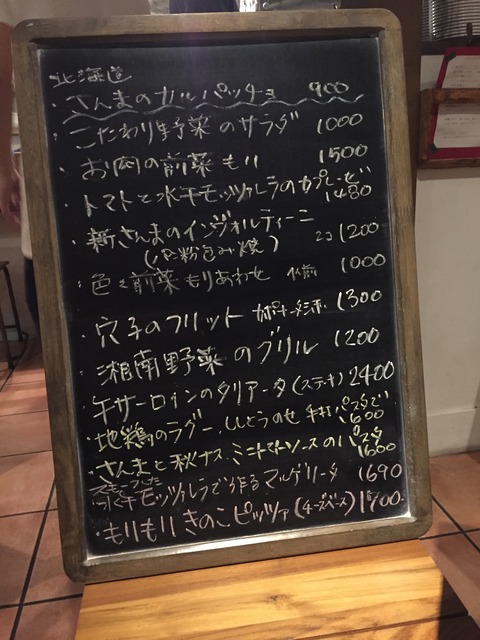 北海道
・さんまのカルパッチョ 900
・こだわり野菜のサラダ 1000
・お肉の前菜もり 1500
・トマトと水牛モッツァレラのカプレーゼ
1480
・新さんまのインヴォルティーニ
(パン粉包み焼) 2コ 1200
・色々前菜もりあわせ 1人前 1000
・穴子のフリット カポナータ添 1300
・湘南野菜のグリル 1200
・牛サーロインのタリアータ(ステーキ) 2400
・地鶏のラグー、ししとうのせ 手打パスタで
1600
・さんまと秋ナス、ミニトマトソースのパスタ
1600
・水牛モッツァレラで作るマルゲリータ 1690
・もりもりきのこピッツァ(チーズベース) 1700